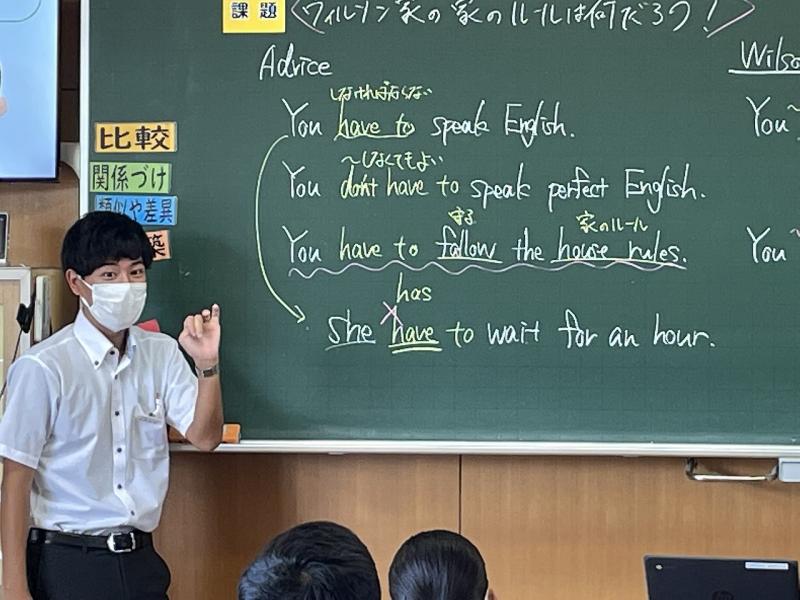 課題
ウィルソン家の家のルールは何だろう!
Advice
しなければならない
You have to speak English.
〜しなくてもよい
You don't have to speak perfect English.
守る 家のルール
You have to follow the house rules.
has
She have to wait for an hour.
Wilso
You 〜
You
比較
関係づけ
類似や差異
築